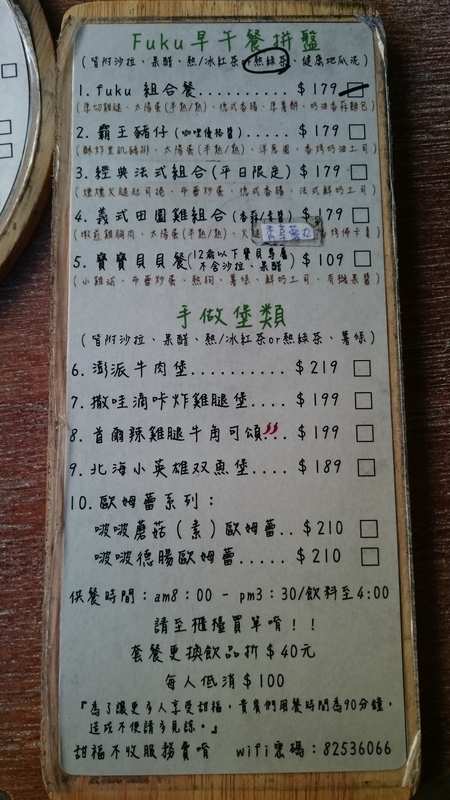 Fuku早午餐拼盤
(皆附沙拉、果醋、熱/冰紅茶or熱綠茶、健康地瓜泥)
1. fuku 組合餐.......... $179
(厚切雞腿、太陽蛋(半熟/熟)、德式香腸、厚薯餅、奶油香蒜麵包)
2. 霸王豬仔(咖哩優格醬).......... $179
(酥炸里肌豬排、太陽蛋(半熟/熟)、洋蔥圈、香烤奶油土司)
3. 經典法式組合(平日限定) $179
(煙燻火腿起司捲、布蕾炒蛋、德式香腸、法式鮮奶土司)
4. 義式田園雞組合(香蒜/青醬) $179
(嫩煎雞胸肉、太陽蛋(半熟/熟)、火腿
5. 寶寶貝貝餐(12歲以下寶貝專屬 不含沙拉、果醋) $109
(小雞塊、布蕾炒蛋、熱狗、薯條、鮮奶土司、有機果醬)
手做堡類
(皆附沙拉、果醋、熱/冰紅茶or熱綠茶、薯條)
6. 澎派牛肉堡.......... $219
7. 撒哇滴咔炸雞腿堡.... $199
8. 首爾辣雞腿牛角可頌... $199
9. 北海小英雄双魚堡.... $189
10. 歐姆蕾系列：
啵啵蘑菇(素)歐姆蕾.. $210
啵啵德腸歐姆蕾..... $210
供餐時間：am8：00 - pm3：30/飲料至4:00
請至櫃檯買單唷！！
套餐更換飲品折$40元
每人低消$100
『為了讓更多人享受甜福，貴賓們用餐時間為90分鐘，
造成不便請多見諒。』
甜福不收服務費唷 wifi密碼：82536066